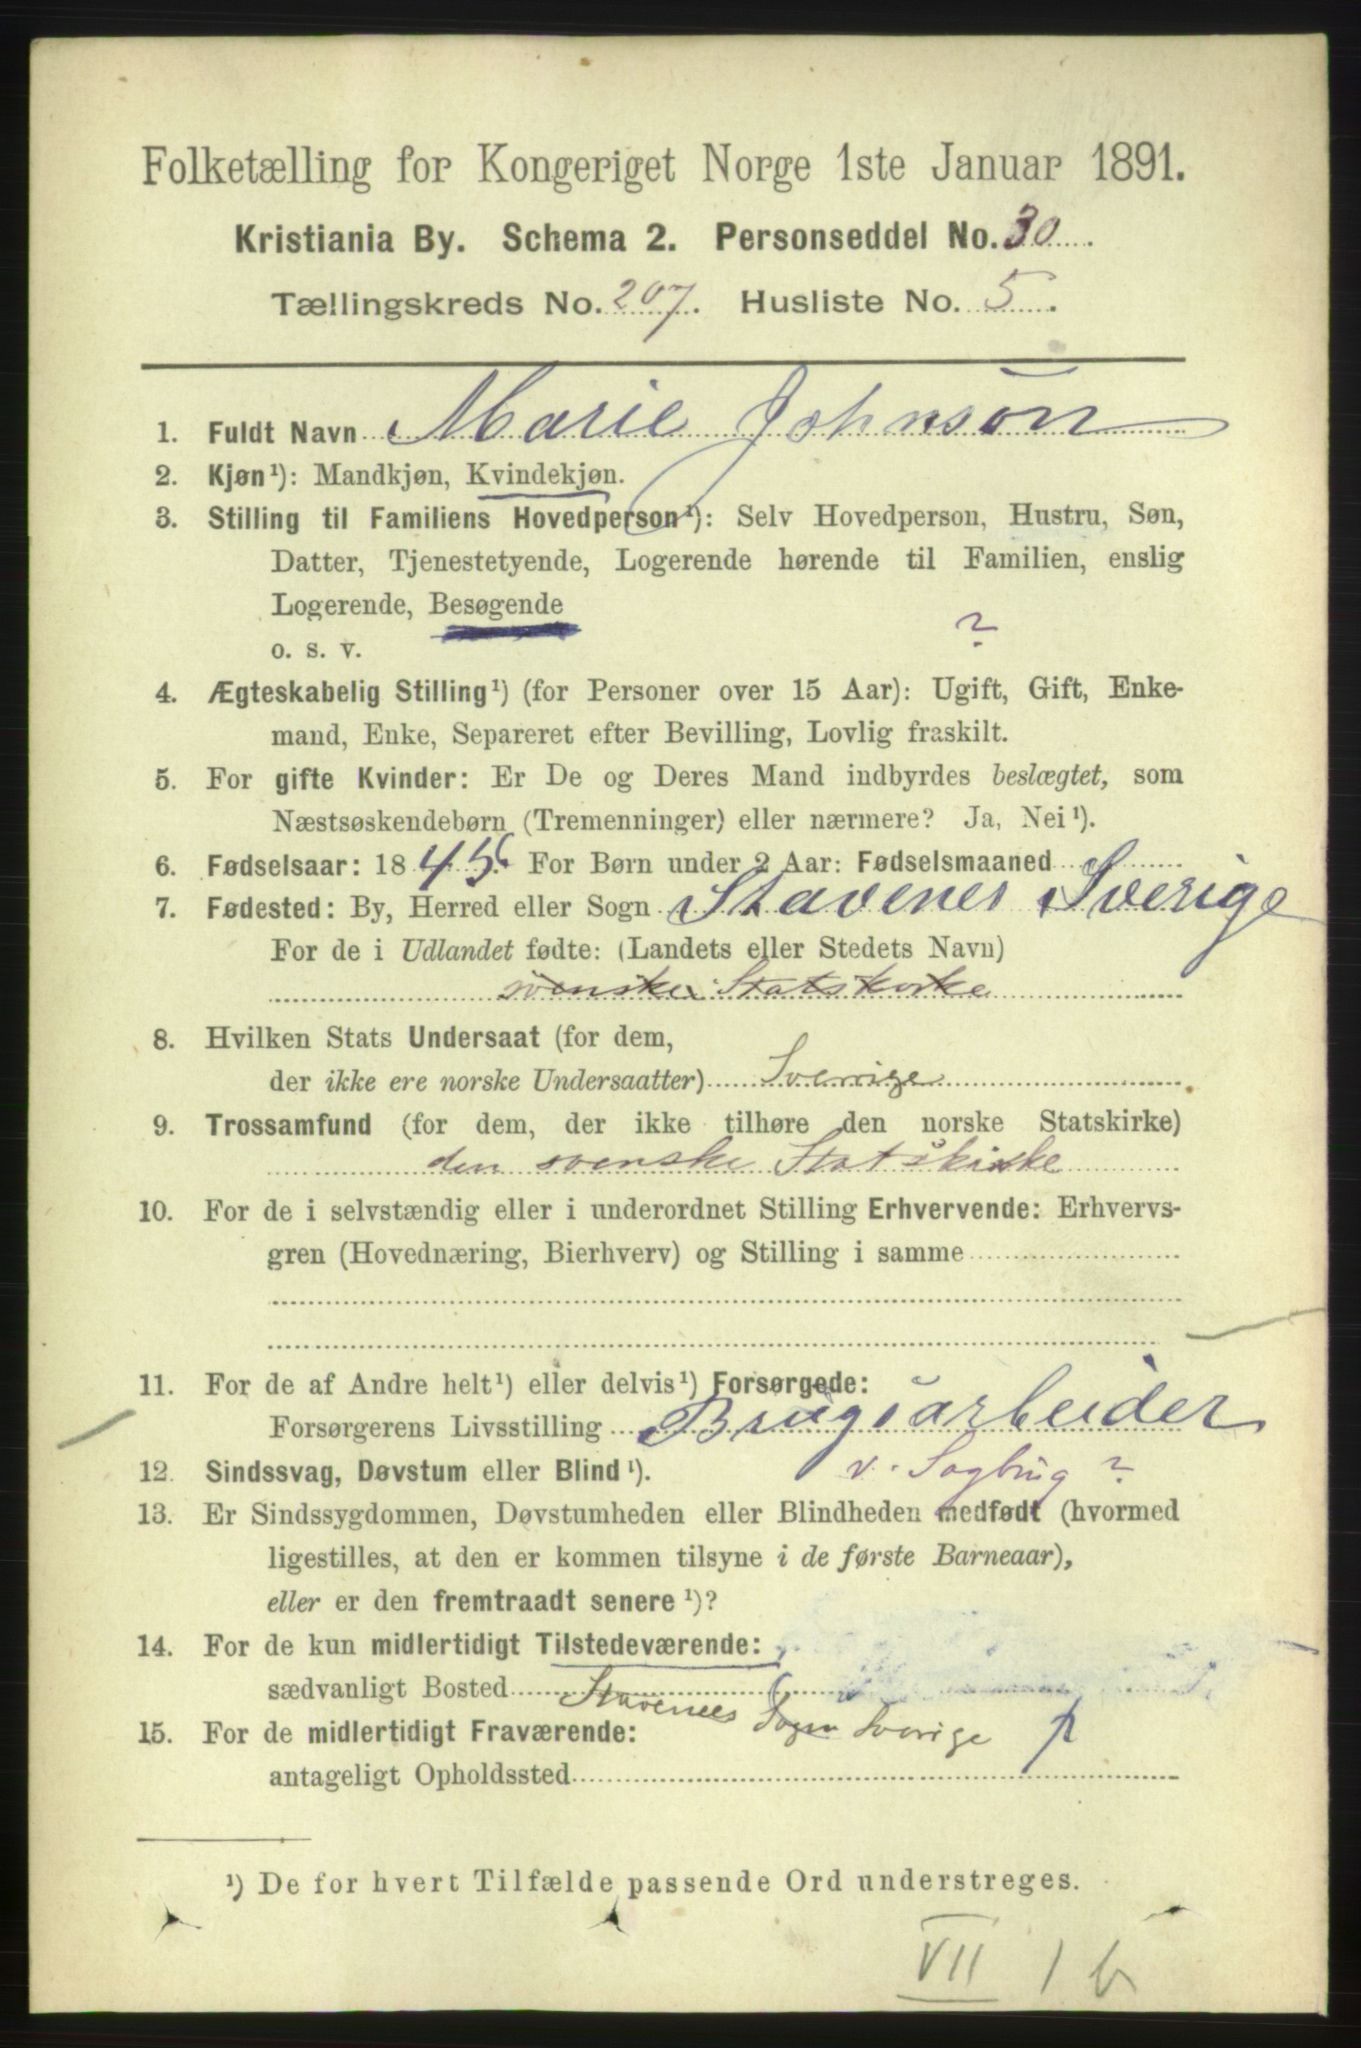 Folketælling for Kongeriget Norge 1ste Januar 1891.
Kristiania By. Schema 2. Personseddel No. 30
Tællingskreds No. 207. Husliste No. 5.
1. Fuldt Navn Marie Johnson
2. Kjøn¹): Mandkjøn, Kvindekjøn.
3. Stilling til Familiens Hovedperson¹): Selv Hovedperson, Hustru, Søn,
Datter, Tjenestetyende, Logerende hørende til Familien, enslig
Logerende, Besøgende
o. s. v. ?
4. Ægteskabelig Stilling¹) (for Personer over 15 Aar): Ugift, Gift, Enke-
mand, Enke, Separeret efter Bevilling, Lovlig fraskilt.
5. For gifte Kvinder: Er De og Deres Mand indbyrdes beslægtet, som
Næstsøskendebørn (Tremenninger) eller nærmere? Ja, Nei¹).
6. Fødselsaar: 1845. For Børn under 2 Aar: Fødselsmaaned
7. Fødested: By, Herred eller Sogn Stavenes Sverige
For de i Udlandet fødte: (Landets eller Stedets Navn)
svenske Statskirke
8. Hvilken Stats Undersaat (for dem,
der ikke ere norske Undersaatter) Sverrige
9. Trossamfund (for dem, der ikke tilhøre den norske Statskirke)
den svenske Statskirke
10. For de i selvstændig eller i underordnet Stilling Erhvervende: Erhvervs-
gren (Hovednæring, Bierhverv) og Stilling i samme
11. For de af Andre helt¹) eller delvis¹) Forsørgede:
Forsørgerens Livsstilling Brugsarbeider
12. Sindssvag, Døvstum eller Blind¹). v. Sagbrug ?
13. Er Sindssygdommen, Døvstumheden eller Blindheden medfødt (hvormed
ligestilles, at den er kommen tilsyne i de første Barneaar),
eller er den fremtraadt senere¹)?
14. For de kun midlertidigt Tilstedeværende:
sædvanligt Bosted Stavenees Sogn Sverige
15. For de midlertidigt Fraværende:
antageligt Opholdssted
¹) De for hvert Tilfælde passende Ord understreges.
VII 1 b